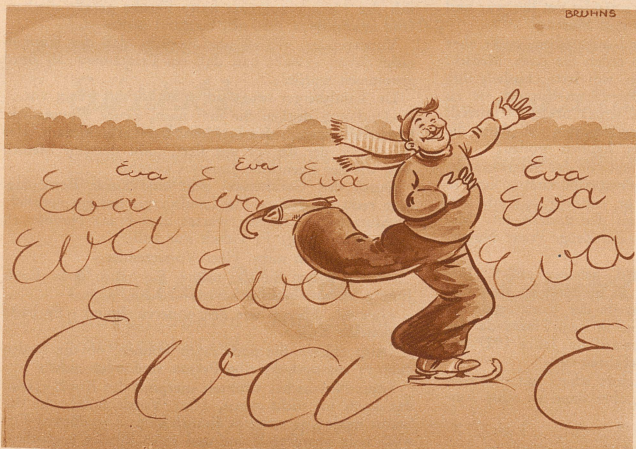 BRUHNS
Eva Eva Eva
Eva Eva Eva Eva
Eva Eva Eva
Eva E